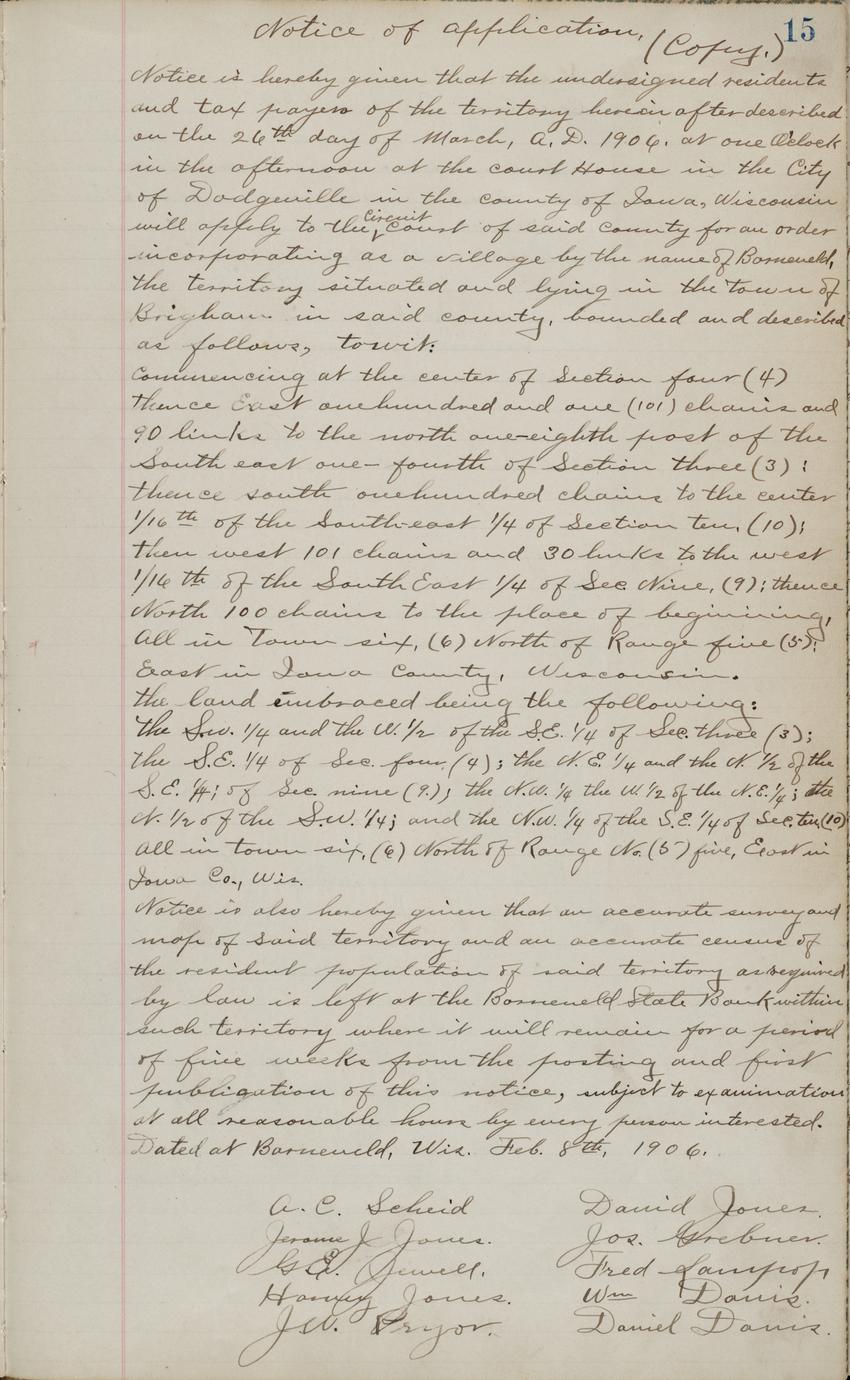 15
Notice of application, (Copy.)
Notice is hereby given that the undersigned residents
and tax payers of the territory herein after described
on the 26th day of March, A.D. 1906. at one O'clock
in the afternoon at the court House in the City
of Dodgeville in the county of Iowa, Wisconsin
will apply to the Circuit Court of said county for an order
incorporating as a village by the name of Barneveld,
the territory situated and lying in the town of
Brigham in said county, bounded and described
as follows, towit:
Commencing at the center of Section four (4)
thence East onehundred and one (101) chains and
90 links to the north one-eighth post of the
South east one-fourth of Section three (3);
thence south onehundred chains to the center
1/16th of the South-east 1/4 of Section ten, (10);
then west 101 chains and 30 links to the west
1/16 th of the South East 1/4 of Sec. Nine, (9); thence
North 100 chains to the place of beginning,
All in Town six, (6) North of Range five (5);
East in Iowa County, Wisconsin.
the land embraced being the following:
the S.W. 1/4 and the W. 1/2 of the S.E. 1/4 of Sec. three (3);
the S.E. 1/4 of Sec. four, (4); the N.E. 1/4 and the N. 1/2 of the
S.E. 1/4; of Sec. nine (9.); the N.W. 1/4 the W. 1/2 of the N.E. 1/4; the
N. 1/2 of the S.W. 1/4; and the N.W. 1/4 of the S.E. 1/4 of Sec. ten (10)
All in town six, (6) North of Range No. (5) five, East in
Iowa Co., Wis.
Notice is also hereby given that an accurate survey and
map of said territory and an accurate census of
the resident population of said territory as required
by law is left at the Barneveld State Bank within
such territory where it will remain for a period
of five weeks from the posting and first
publication of this notice, subject to examination
at all reasonable hours by every person interested.
Dated at Barneveld, Wis. Feb. 8th, 1906.
A. C. Scheid David Jones.
Jerome J. Jones. Jos. Grebner.
G.E. Jewell. Fred Lampop
Harvey Jones. Wm Davis.
J.W. Pryor. Daniel Davis.